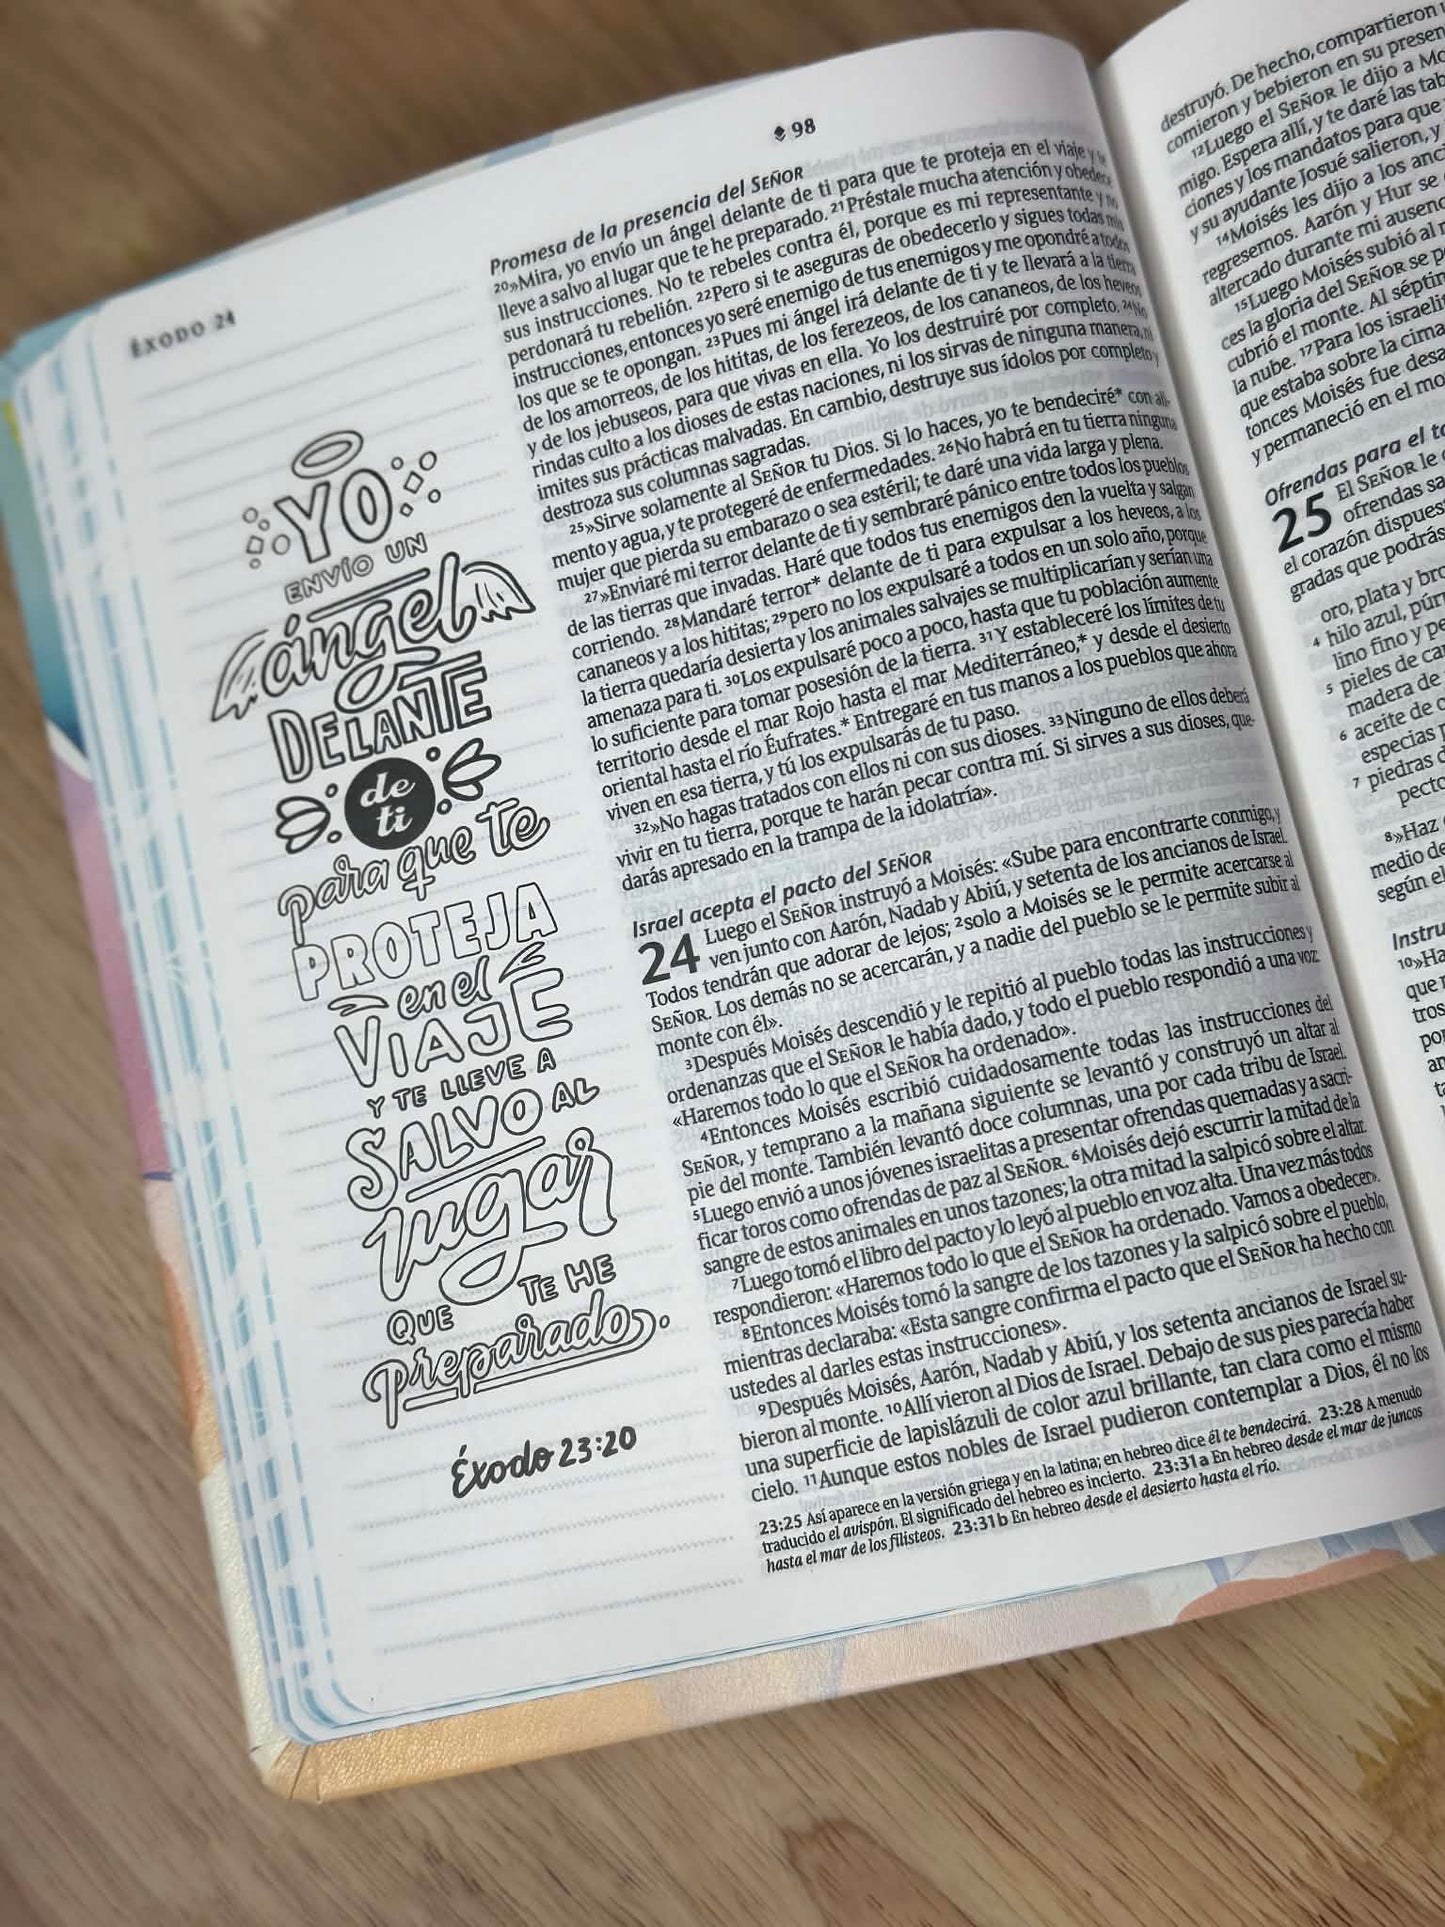 ÉXODO 24
98
YO
ENVÍO UN
ángel
DELANTE
de
ti
para que te
PROTEJA
en el
VIAJE
Y TE LLEVE A
SALVO AL
lugar
QUE TE HE
preparado.
Éxodo 23:20
Promesa de la presencia del SEÑOR
20»Mira, yo envío un ángel delante de ti para que te proteja en el viaje y te
lleve a salvo al lugar que te he preparado. 21Préstale mucha atención y obedece
sus instrucciones. No te rebeles contra él, porque es mi representante y no
perdonará tu rebelión. 22Pero si te aseguras de obedecerlo y sigues todas mis
instrucciones, entonces yo seré enemigo de tus enemigos y me opondré a todos
los que se te opongan. 23Pues mi ángel irá delante de ti y te llevará a la tierra
de los amorreos, de los hititas, de los ferezeos, de los cananeos, de los heveos
y de los jebuseos, para que vivas en ella. Yo los destruiré por completo. 24No
rindas culto a los dioses de estas naciones, ni los sirvas de ninguna manera, ni
imites sus prácticas malvadas. En cambio, destruye sus ídolos por completo y
destroza sus columnas sagradas.
25»Sirve solamente al SEÑOR tu Dios. Si lo haces, yo te bendeciré* con ali-
mento y agua, y te protegeré de enfermedades. 26No habrá en tu tierra ninguna
mujer que pierda su embarazo o sea estéril; te daré una vida larga y plena.
27»Enviaré mi terror delante de ti y sembraré pánico entre todos los pueblos
de las tierras que invadas. Haré que todos tus enemigos den la vuelta y salgan
corriendo. 28Mandaré terror* delante de ti para expulsar a los heveos, a los
cananeos y a los hititas; 29pero no los expulsaré a todos en un solo año, porque
la tierra quedaría desierta y los animales salvajes se multiplicarían y serían una
amenaza para ti. 30Los expulsaré poco a poco, hasta que tu población aumente
lo suficiente para tomar posesión de la tierra. 31Y estableceré los límites de tu
territorio desde el mar Rojo hasta el mar Mediterráneo,* y desde el desierto
oriental hasta el río Éufrates.* Entregaré en tus manos a los pueblos que ahora
viven en esa tierra, y tú los expulsarás de tu paso.
32»No hagas tratados con ellos ni con sus dioses. 33Ninguno de ellos deberá
vivir en tu tierra, porque te harán pecar contra mí. Si sirves a sus dioses, que-
darás apresado en la trampa de la idolatría».
Israel acepta el pacto del SEÑOR
24 Luego el SEÑOR instruyó a Moisés: «Sube para encontrarte conmigo, y
ven junto con Aarón, Nadab y Abiú, y setenta de los ancianos de Israel.
Todos tendrán que adorar de lejos; 2solo a Moisés se le permite acercarse al
SEÑOR. Los demás no se acercarán, y a nadie del pueblo se le permite subir al
monte con él».
3Después Moisés descendió y le repitió al pueblo todas las instrucciones y
ordenanzas que el SEÑOR le había dado, y todo el pueblo respondió a una voz:
«Haremos todo lo que el SEÑOR ha ordenado».
4Entonces Moisés escribió cuidadosamente todas las instrucciones del
SEÑOR, y temprano a la mañana siguiente se levantó y construyó un altar al
pie del monte. También levantó doce columnas, una por cada tribu de Israel.
5Luego envió a unos jóvenes israelitas a presentar ofrendas quemadas y a sacri-
ficar toros como ofrendas de paz al SEÑOR. 6Moisés dejó escurrir la mitad de la
sangre de estos animales en unos tazones; la otra mitad la salpicó sobre el altar.
7Luego tomó el libro del pacto y lo leyó al pueblo en voz alta. Una vez más todos
respondieron: «Haremos todo lo que el SEÑOR ha ordenado. Vamos a obedecer».
8Entonces Moisés tomó la sangre de los tazones y la salpicó sobre el pueblo,
mientras declaraba: «Esta sangre confirma el pacto que el SEÑOR ha hecho con
ustedes al darles estas instrucciones».
9Después Moisés, Aarón, Nadab y Abiú, y los setenta ancianos de Israel su-
bieron al monte. 10Allí vieron al Dios de Israel. Debajo de sus pies parecía haber
una superficie de lapislázuli de color azul brillante, tan clara como el mismo
cielo. 11Aunque estos nobles de Israel pudieron contemplar a Dios, él no los
23:25 Así aparece en la versión griega y en la latina; en hebreo dice él te bendecirá. 23:28 A menudo
traducido el avispón. El significado del hebreo es incierto. 23:31a En hebreo desde el mar de juncos
hasta el mar de los filisteos. 23:31b En hebreo desde el desierto hasta el río.
destruyó. De hecho, compartieron
comieron y bebieron en su presen
12Luego el SEÑOR le dijo a Mo
migo. Espera allí, y te daré las tab
ciones y los mandatos para que
y su ayudante Josué salieron, y
14Moisés les dijo a los anci
regresemos. Aarón y Hur se
altercado durante mi ausenc
15Luego Moisés subió al
ces la gloria del SEÑOR se p
cubrió el monte. Al séptim
la nube. 17Para los israelit
que estaba sobre la cima
tonces Moisés fue desa
y permaneció en el mo
Ofrendas para el ta
25 El SEÑOR le
ofrendas sa
el corazón dispues
gradas que podrás
oro, plata y bro
4 hilo azul, púrp
lino fino y pe
5 pieles de ca
madera de
6 aceite de o
especias
7 piedras
pecto
8»Haz
medio de
según el
Instru
10»Ha
que
tros